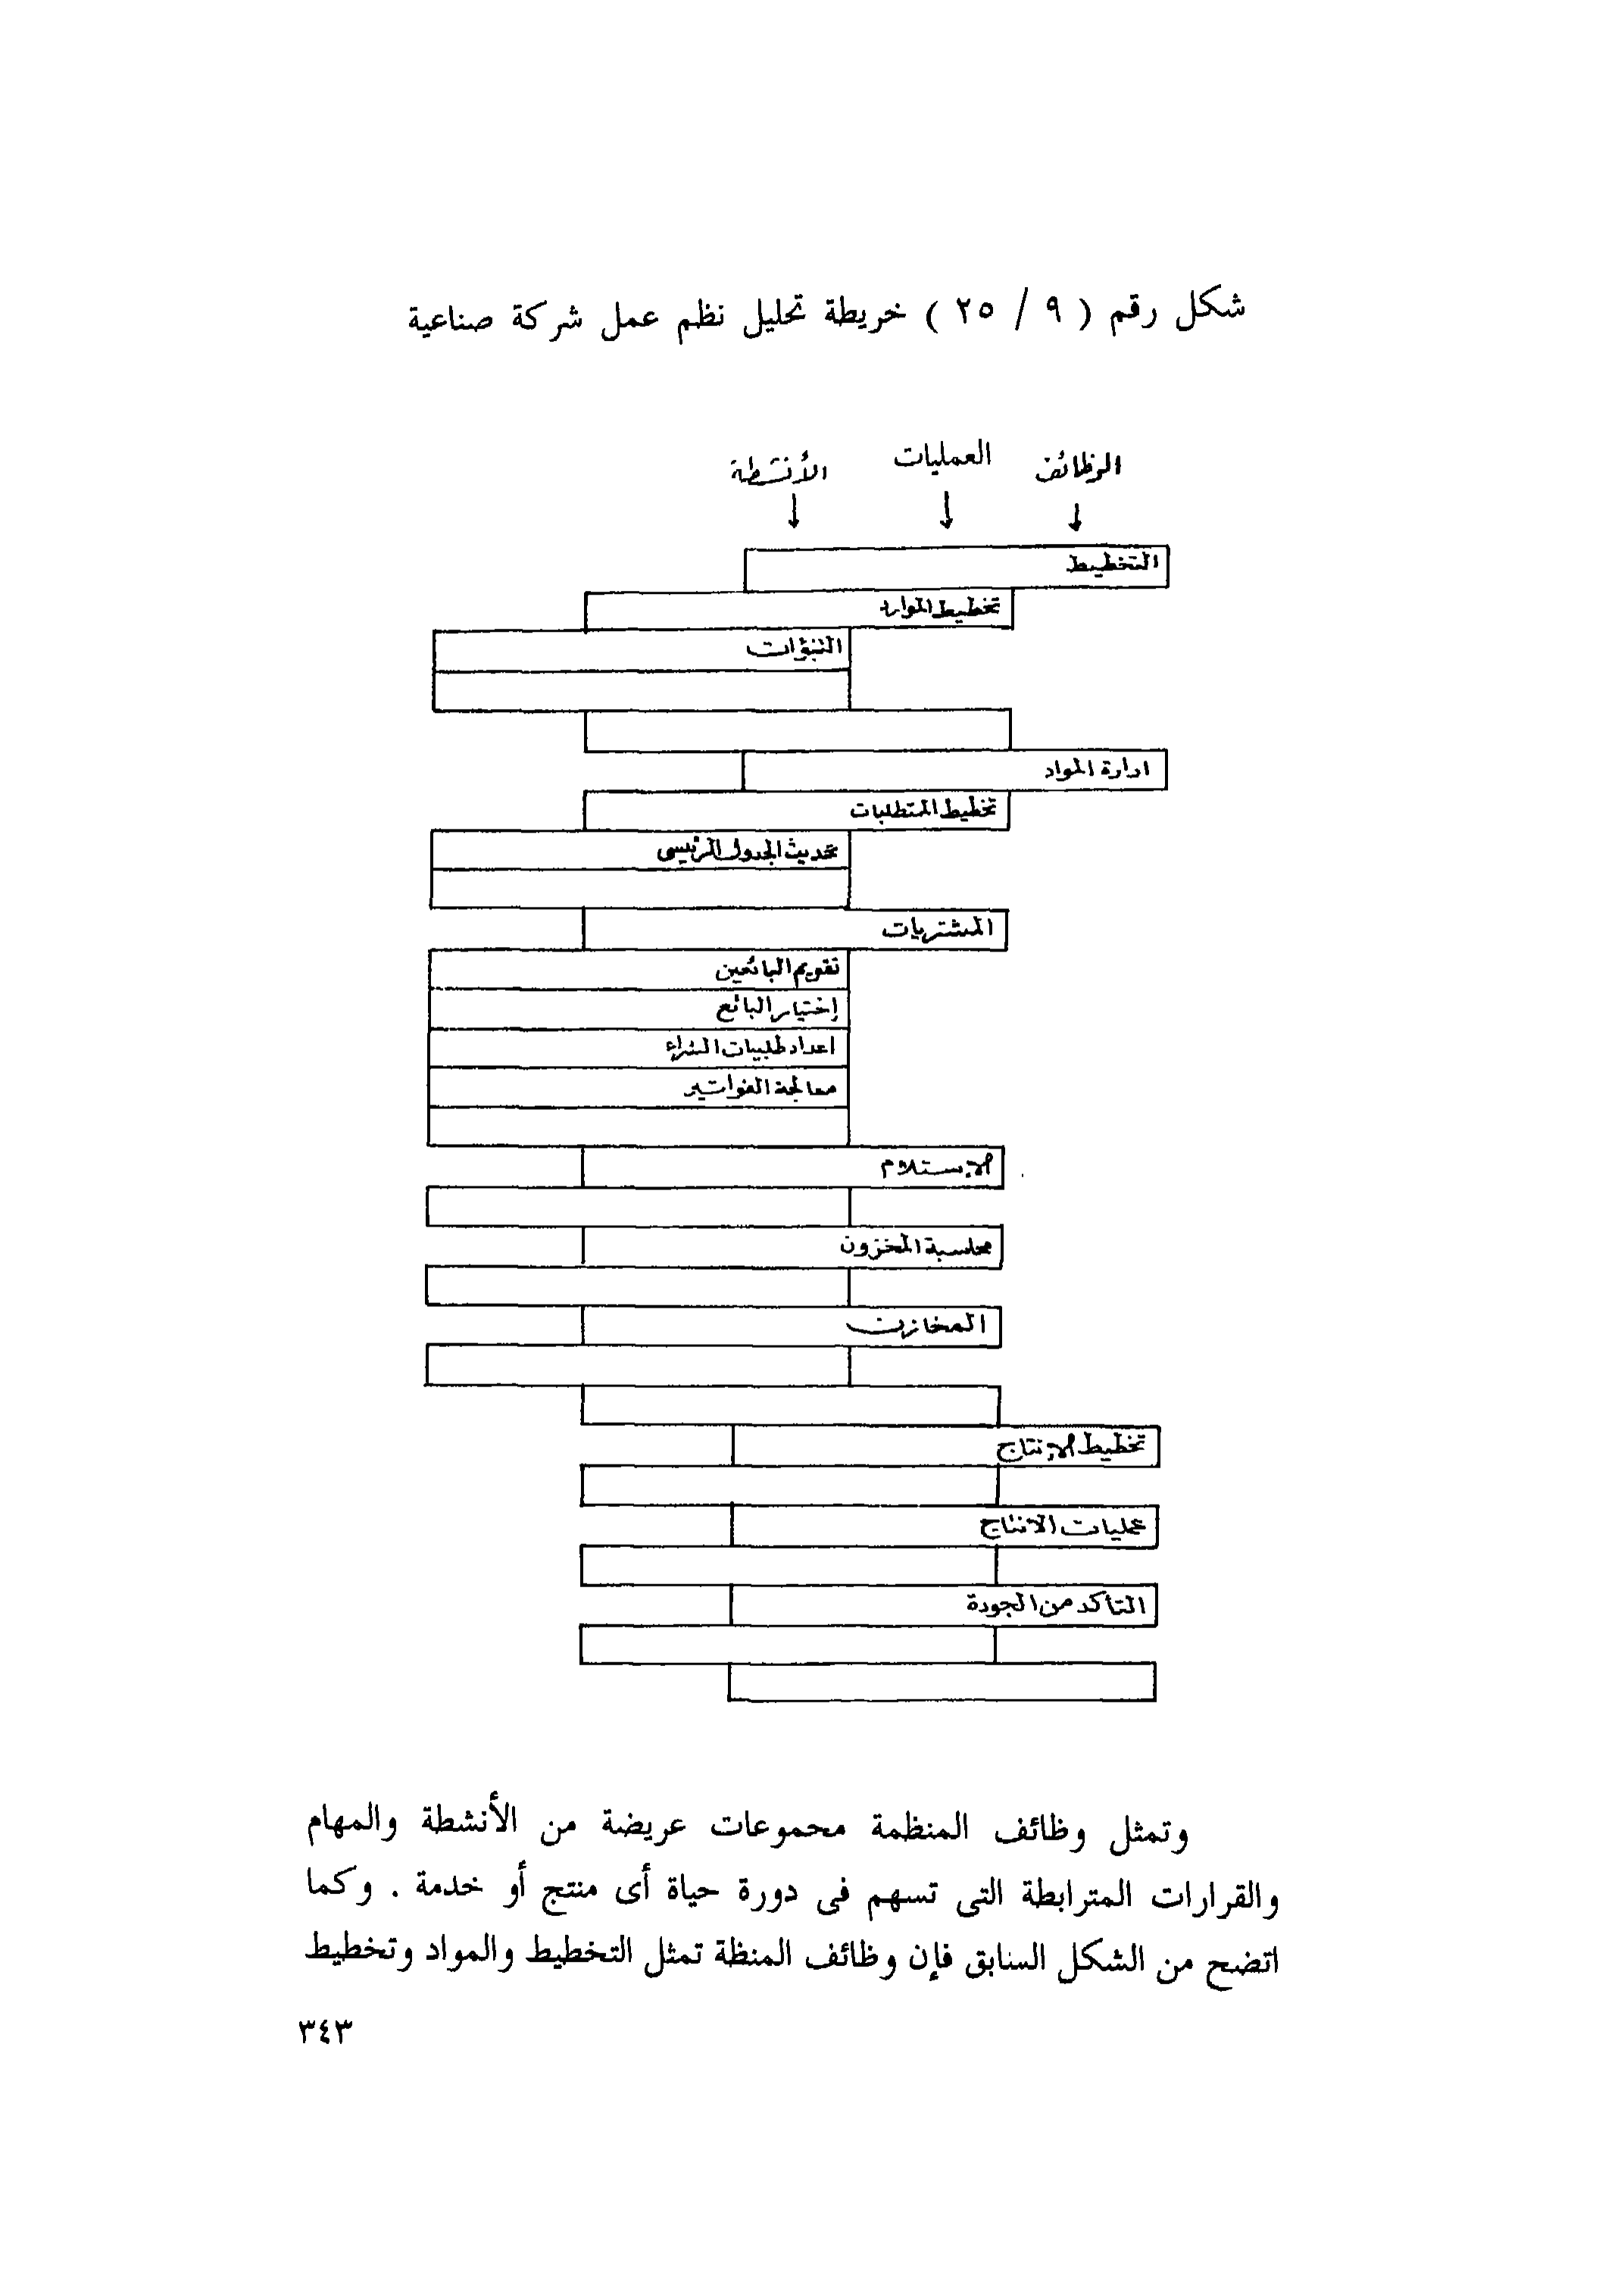 شكل رقم ( ٩ / ٢٥ ) خريطة تحليل نظم عمل شركة صناعية
الوظائف العمليات الأنشطة
التخطيط
تخطيط الموارد
التنبؤات
ادارة المواد
تخطيط المتطلبات
تحديث الجدول الرئيسى
المشتريات
تقويم البائعين
إختيار البائع
اعداد طلبيات الشراء
معالجة الفواتير
الإستلام
محاسبة المخزون
المخازن
تخطيط الإنتاج
عمليات الانتاج
التأكد من الجودة
وتمثل وظائف المنظمة محموعات عريضة من الأنشطة والمهام
والقرارات المترابطة التى تسهم فى دورة حياة أى منتج أو خدمة . وكما
اتضح من الشكل السابق فإن وظائف المنظة تمثل التخطيط والمواد وتخطيط
٣٤٣